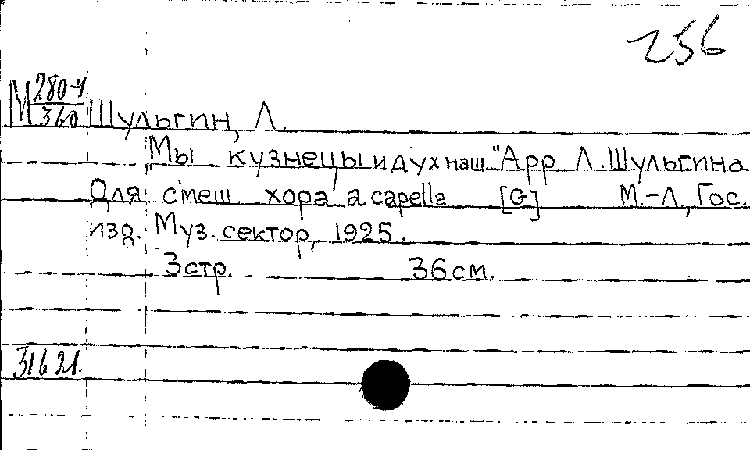 256
М 280-4/360 Шульгин, Л.
"Мы кузнецы и дух наш" Арр Л. Шульгина
для смеш хора a capella [G] М.-Л., Гос.
изд. Муз. сектор, 1925.
3 стр. 36 см.
31621.